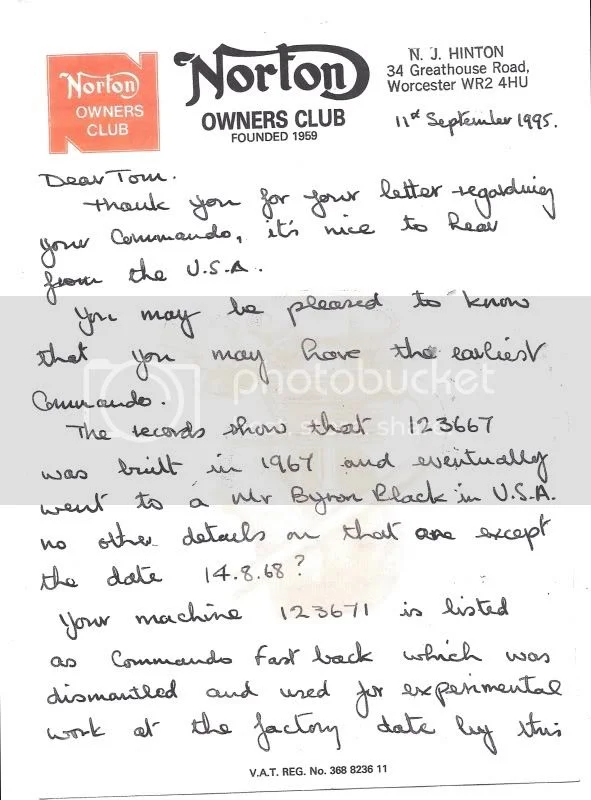 Norton
OWNERS
CLUB
Norton
OWNERS CLUB
FOUNDED 1959
N. J. HINTON
34 Greathouse Road,
Worcester WR2 4HU
11st September 1995.
Dear Tom.
Thank you for your letter regarding
your Commando, it's nice to hear
from the U.S.A.
You may be pleased to know
that you may have the earliest
Commando.
The records show that 123667
was built in 1967 and eventually
went to a Mr Byron Black in U.S.A.
no other details on that one except
the date 14.8.68?
Your machine 123671 is listed
as Commando Fast back which was
dismantled and used for experimental
work at the factory date by this
V.A.T. REG. No. 368 8236 11
photobucket